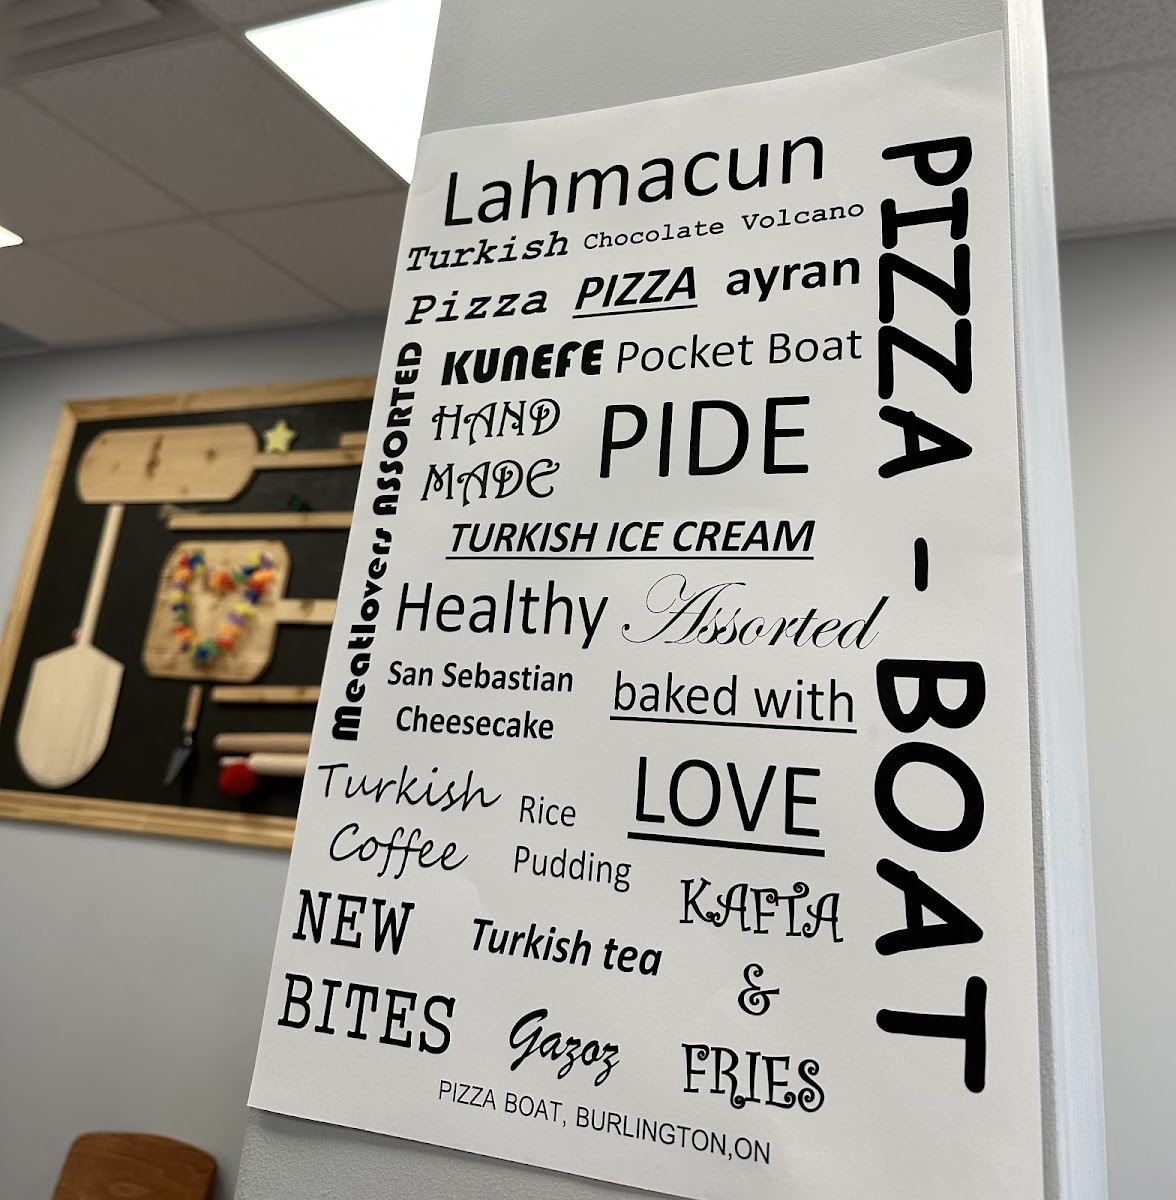 Lahmacun
Turkish Chocolate Volcano
Pizza PIZZA ayran
KUNEFE Pocket Boat
HAND
MADE
PIDE
TURKISH ICE CREAM
Meatlovers ASSORTED
Healthy Assorted
San Sebastian
Cheesecake
baked with
LOVE
Turkish
Coffee
Rice
Pudding
KAFTA
&
FRIES
NEW
BITES
Turkish tea
Gazoz
PIZZA - BOAT
PIZZA BOAT, BURLINGTON,ON